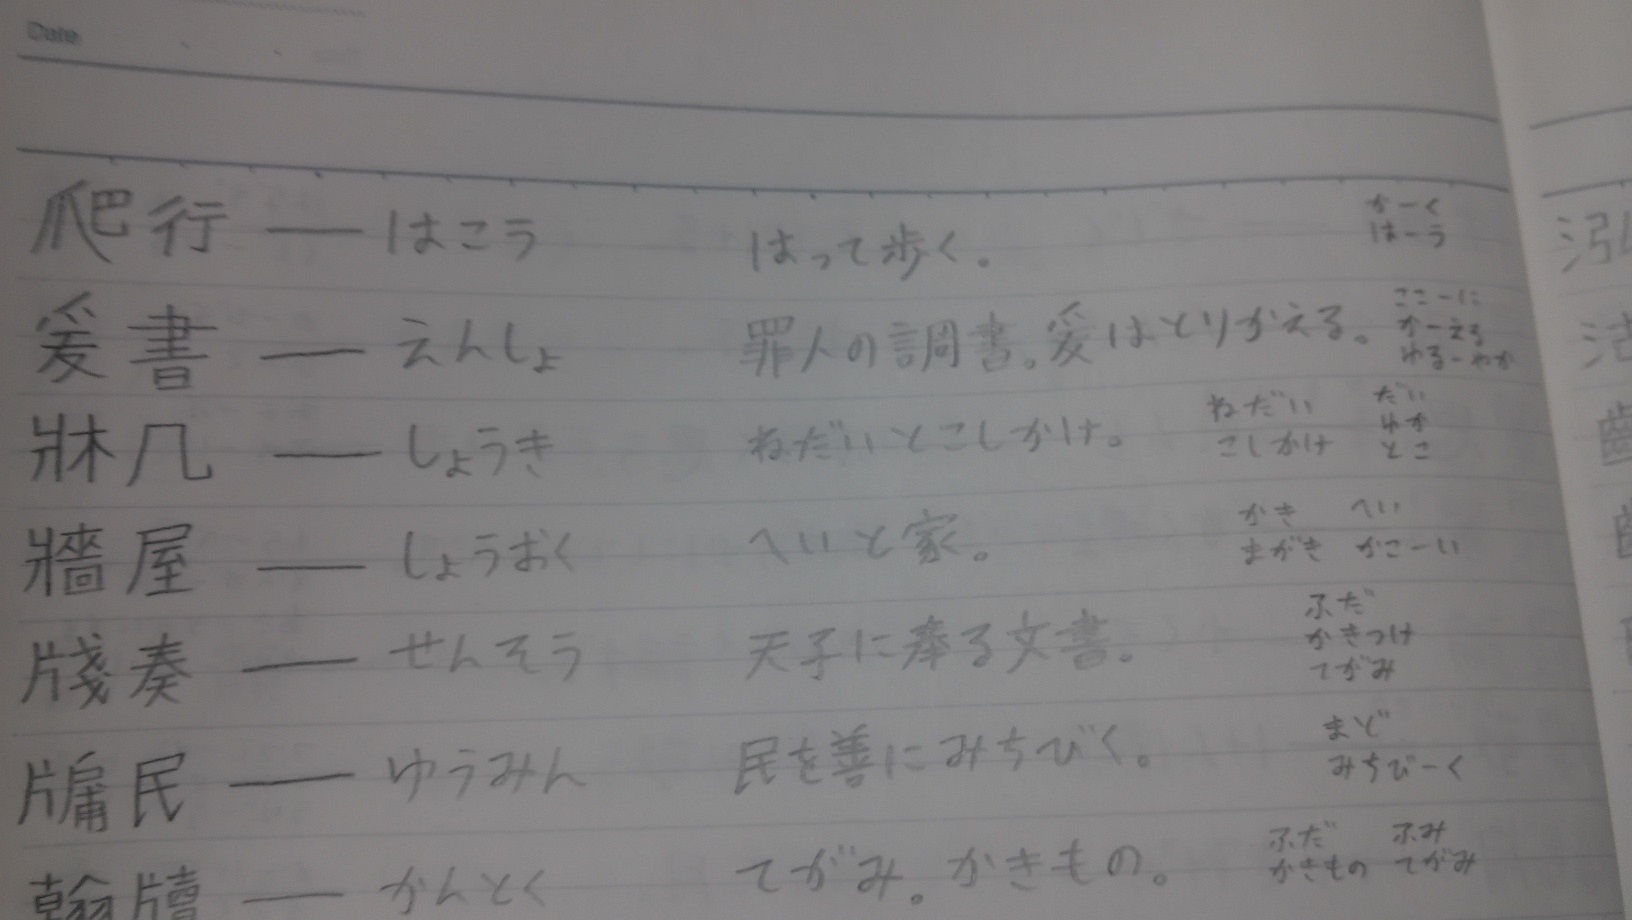 Date
爬行 — はこう はって歩く。 か-く は-う
爰書 — えんしょ 罪人の調書。爰はとりかえる。 ここ-に か-える わる-わか
牀几 — しょうき ねだいとこしかけ。 ねだい こしかけ だい ゆか とこ
牆屋 — しょうおく へいと家。 かき まがき へい かこ-い
牋奏 — せんそう 天子に奉る文書。 ふだ かきつけ てがみ
牖民 — ゆうみん 民を善にみちびく。 まど みちび-く
翰牘 — かんとく てがみ。かきもの。 ふだ かきもの ふみ てがみ